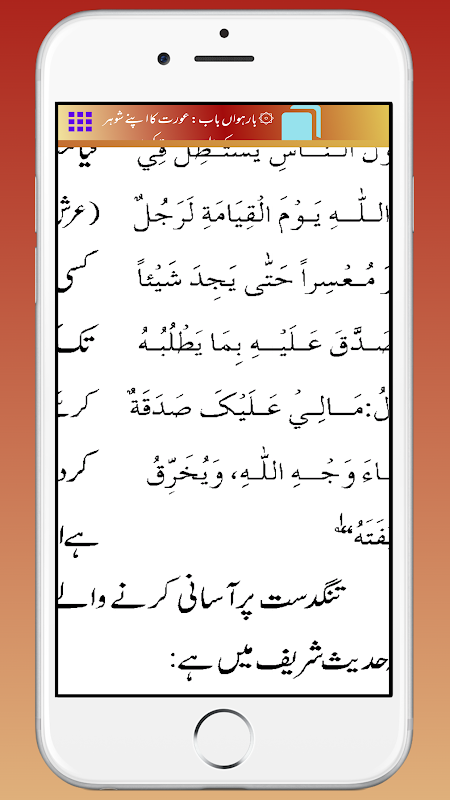 ۞ بارہواں باب : عورت کا اپنے شوہر
النَّاسِ يَسْتَظِلُّ فِي
اللّٰهِ يَوْمَ الْقِيَامَةِ لَرَجُلٌ (عرش
مُعْسِراً حَتّٰى يَجِدَ شَيْئاً کسی
عَلَيْهِ بِمَا يَطْلُبُهُ تک
مَالِيْ عَلَيْکَ صَدَقَةٌ
وَجْهِ اللّٰهِ، وَيُخَرِّقُ کرد
ہے۔
تنگدست پر آسانی کرنے والے
حدیث شریف میں ہے: